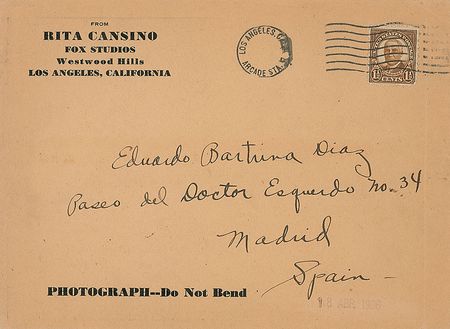 FROM
RITA CANSINO
FOX STUDIOS
Westwood Hills
LOS ANGELES, CALIFORNIA
LOS ANGELES, CALIF.
ARCADE STA.
1½ CENTS 1½
Eduardo Bartrina Diaz
Paseo del Doctor Esquerdo No. 34
Madrid
Spain
PHOTOGRAPH--Do Not Bend
18 ABR